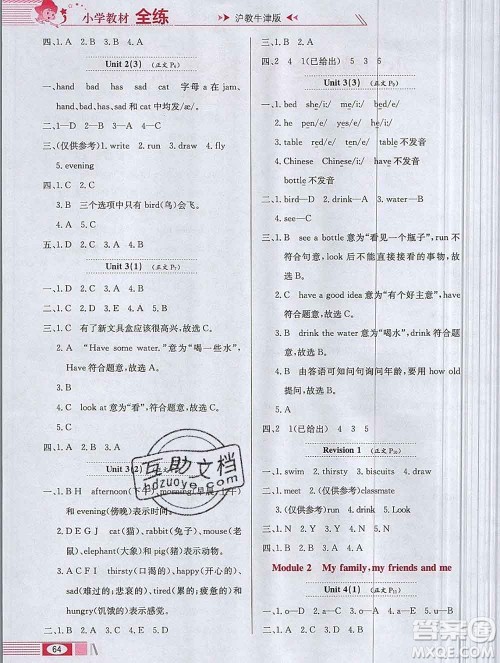 小学教材 全练
沪教牛津版
四、1. A 2. B 3. A 4. A
Unit 2(3) (正文 P₆)
一、hand bad has sad cat 字母 a 在 jam,
hand, bad, has, sad 和 cat 中均发/æ/.
二、1—D 2—C 3—B 4—A
三、(仅供参考) 1. write 2. run 3. draw 4. fly
5. evening
四、1. C 2. C
3. B 三个选项中只有 bird(鸟)会飞。
4. B 5. A
五、1. D 2. C 3. A 4. B
Unit 3(1) (正文 P₇)
一、1. D 2. B 3. A 4. C
二、1—D 2—C 3—A 4—E 5—B
三、1. C 有了新文具盒应该很高兴,故选 C。
2. A “Have some water.”意为“喝一些水”,
Have 符合题意,故选 A。
3. C look at 意为“看”,符合题意,故选 C。
四、1. A 2. B
Unit 3(2)
一、1. B H afternoon(下午), morning(早晨、上午)
和 evening(傍晚)表示时间。
2. D E G J cat(猫), rabbit(兔子), mouse(老
鼠), elephant(大象)和 pig(猪)表示动物。
3. A C F I thirsty(口渴的), happy(开心的),
sad(难过的、悲哀的), tired(疲倦的、疲劳的)
和 hungry(饥饿的)表示感觉。
二、1. D 2. B 3. E 4. A 5. C
三、1. B 2. B 3. A 4. B
64
四、2 4 1(已给出) 5 3 6
Unit 3(3) (正文 P₉)
一、1. bed she/iː/ me/iː/ red/e/
2. he pen/e/ we/iː/ ten/e/
3. table run/e/ these/iː/ table 不发音
4. Chinese Chinese/iː/ have 不发音
bottle 不发音
二、1. bird—A 2. drink—A 3. water—B
4. see—C
三、1. B see a bottle 意为“看见一个瓶子”, run 不
符合句意, look 后不能直接接看的事物,故
选 B。
2. C have a good idea 意为“有个好主意”, have
符合题意,故选 C。
3. B drink the water 意为“喝水”, drink 符合
题意,故选 B。
4. B 由答语可知问句询问年龄,要用 how old
提问,故选 B。
四、1. A 2. B 3. A
五、2 1(已给出) 4 3 5
Revision 1 (正文 P₁₀)
一、1. swim 2. thirsty 3. biscuits 4. draw
二、1. meet 2. (仅供参考) classmate
3. (仅供参考) evening 4. Look
三、1. N 2. Y 3. N 4. Y
四、1. C 2. A 3. B
Module 2 My family, my friends and me
Unit 4(1) (正文 P₁₁)
一、1. o—D 2. a—A 3. u—B 4. a—C
互助文档
hdzuoye.com
答案圈
MXQE.COM